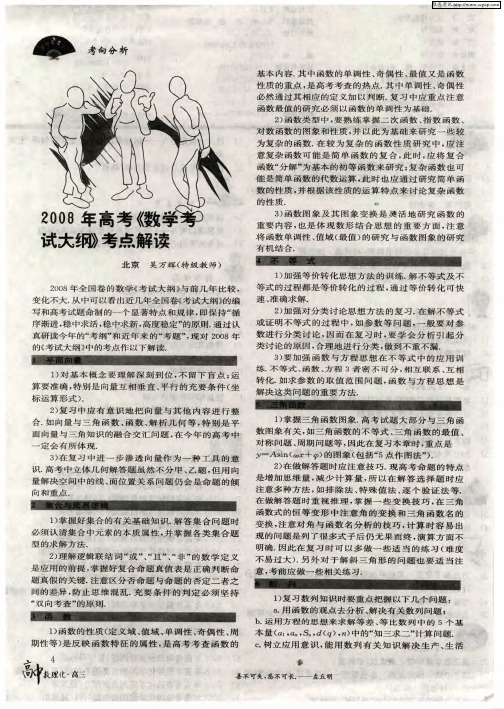 维普资讯 http://www.cqvip.com
考向分析
2008 年高考《数学考
试大纲》考点解读
北京 吴万辉(特级教师)
2008年全国卷的数学《考试大纲》与前几年比较,
变化不大.从中可以看出近几年全国卷《考试大纲》的编
写和高考试题命制的一个显著特点和规律,即保持“循
序渐进,稳中求活,稳中求新,高度稳定”的原则.通过认
真研读今年的“考纲”和近年来的“考题”,现对 2008 年
的《考试大纲》中的考点作以下解读.
1 平面向量
1)对基本概念要理解深刻到位,不留下盲点;运
算要准确,特别是向量互相垂直、平行的充要条件(坐
标运算形式).
2)复习中应有意识地把向量与其他内容进行整
合.如向量与三角函数、函数、解析几何等,特别是平
面向量与三角知识的融合交汇问题,在今年的高考中
一定会有所体现.
3)在复习中进一步渗透向量作为一种工具的意
识.高考中立体几何解答题虽然不分甲、乙题,但用向
量解决空间中的线、面位置关系问题仍会是命题的倾
向和重点.
2 集合与简易逻辑
1)掌握好集合的有关基础知识.解答集合问题时
必须认清集合中元素的本质属性,并掌握各类集合题
型的求解方法.
2)理解逻辑联结词“或”、“且”、“非”的数学定义
是应用的前提,掌握好复合命题真值表是正确判断命
题真假的关键.注意区分否命题与命题的否定二者之
间的差异,防止思维混乱.充要条件的判定必须坚持
“双向考查”的原则.
3 函 数
1)函数的性质(定义域、值域、单调性、奇偶性、周
期性等)是反映函数特征的属性,是高考考查函数的
基本内容.其中函数的单调性、奇偶性、最值又是函数
性质的重点,是高考考查的热点.其中单调性、奇偶性
必然通过其相应的定义加以判断.复习中应重点注意
函数最值的研究必须以函数的单调性为基础.
2)函数类型中,要熟练掌握二次函数、指数函数、
对数函数的图象和性质,并以此为基础来研究一些较
为复杂的函数.在较为复杂的函数性质研究中,应注
意复杂函数可能是简单函数的复合,此时,应将复合
函数“分解”为基本的初等函数来研究;复杂函数也可
能是简单函数的代数运算,此时也应通过研究简单函
数的性质,并根据该性质的运算特点来讨论复杂函数
的性质.
3)函数图象及其图象变换是灵活地研究函数的
重要内容,也是体现数形结合思想的重要方面,注意
将函数单调性、值域(最值)的研究与函数图象的研究
有机结合.
4 不 等 式
1)加强等价转化思想方法的训练.解不等式及不
等式的过程都是等价转化的过程,通过等价转化可快
速、准确求解.
2)加强对分类讨论思想方法的复习.在解不等式
或证明不等式的过程中,如参数等问题,一般要对参
数进行分类讨论,因而在复习时,要学会分析引起分
类讨论的原因,合理地进行分类,做到不重不漏.
3)要加强函数与方程思想在不等式中的应用训
练.不等式、函数、方程 3 者密不可分,相互联系、互相
转化.如求参数的取值范围问题,函数与方程思想是
解决这类问题的重要方法.
5 三角函数
1)掌握三角函数图象.高考试题大部分与三角函
数图象有关,如三角函数的不等式、三角函数的最值、
对称问题、周期问题等,因此在复习本章时,重点是
y=Asin(ωx+φ)的图象(包括“5 点作图法”).
2)在做解答题时应注意技巧.现高考命题的特点
是增加思维量,减少计算量,所以在解答选择题时应
注意多种方法,如排除法、特殊值法、逐个验证法等.
在做解答题时重视推理,掌握一些变换技巧,在三角
函数式的恒等变形中注意角的变换和三角函数名的
变换,注意对角与函数名分析的技巧,计算时容易出
现的问题是列了很多式子后仍无果而终,演算方面不
明确.因此在复习时可以多做一些适当的练习(难度
不易过大).另外对于解斜三角形的问题也要适当注
意,考前应做一些相关练习.
6 数 列
1)复习数列知识时要重点把握以下几个问题:
a. 用函数的观点去分析、解决有关数列问题;
b. 运用方程的思想来求解等差、等比数列中的 5 个基
本量(a₁,aₙ,Sₙ,d(q),n)中的“知三求二”计算问题.
c. 树立应用意识,能用数列有关知识解决生产、生活
4
高中数理化·高三
善不可失,恶不可长.——左丘明